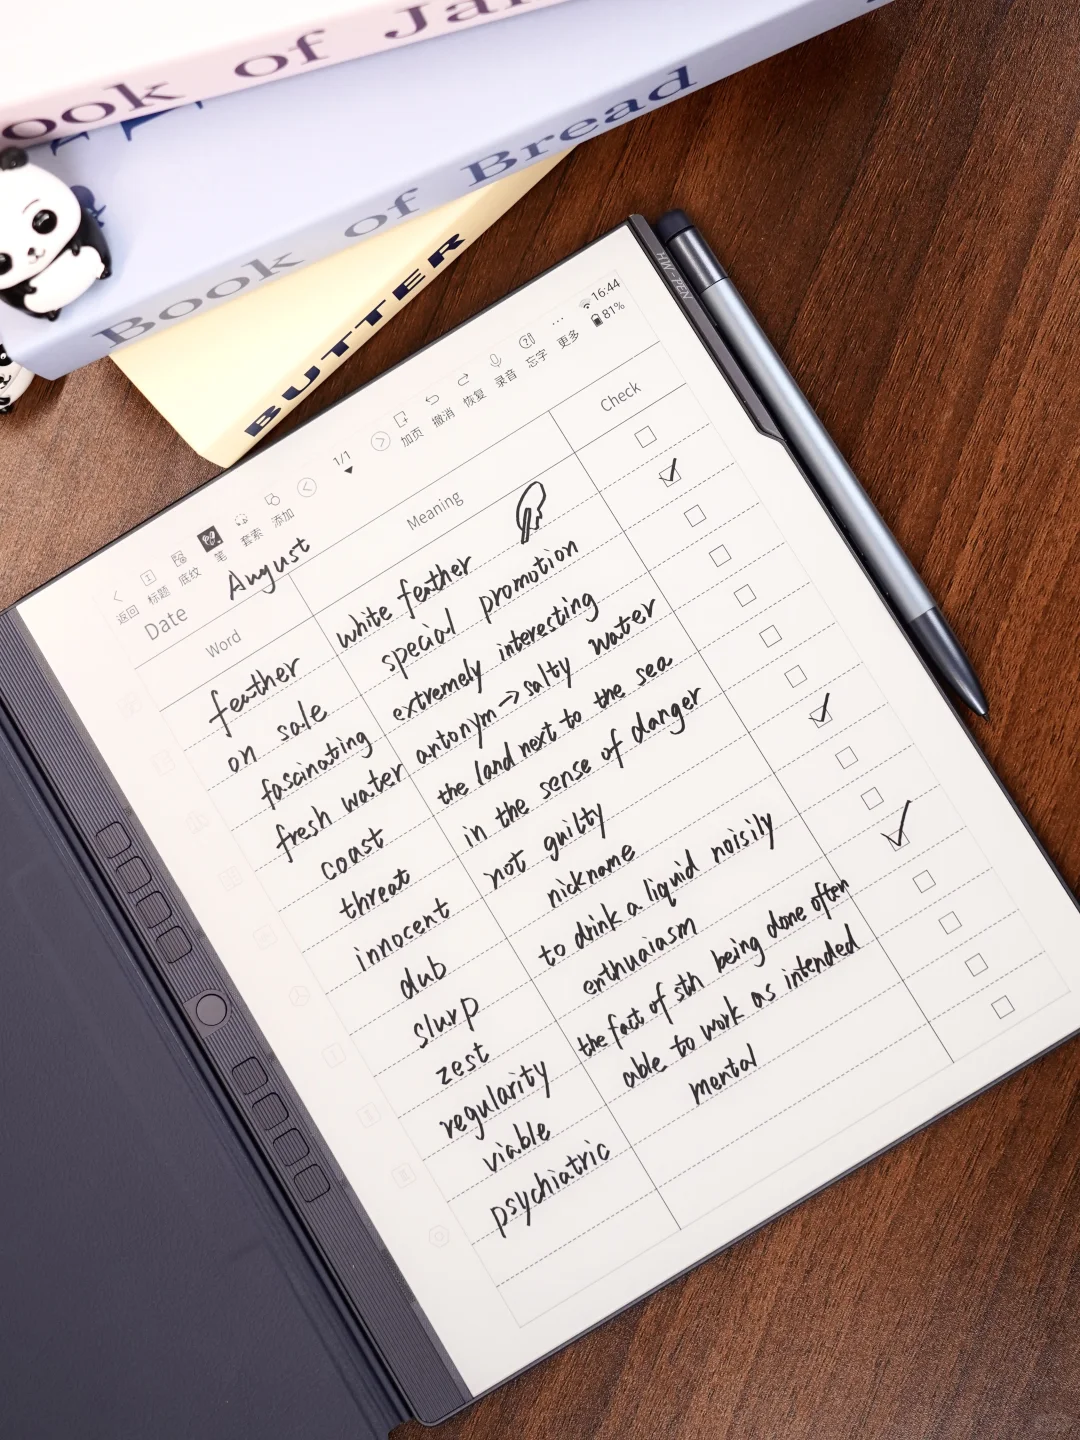 ook of Jam
Book of Bread
BUTTER
HW-PEN
16:44
81%
返回 标题 底纹 笔 套索 添加 1/1 加页 撤消 恢复 录音 忘字 更多
Date August
Word Meaning Check
feather white feather
on sale special promotion
fascinating extremely interesting
fresh water antonym → salty water
coast the land next to the sea
threat in the sense of danger
innocent not guilty
dub nickname
slurp to drink a liquid noisily
zest enthuaiasm
regularity the fact of sth being done often
viable able to work as intended
psychiatric mental